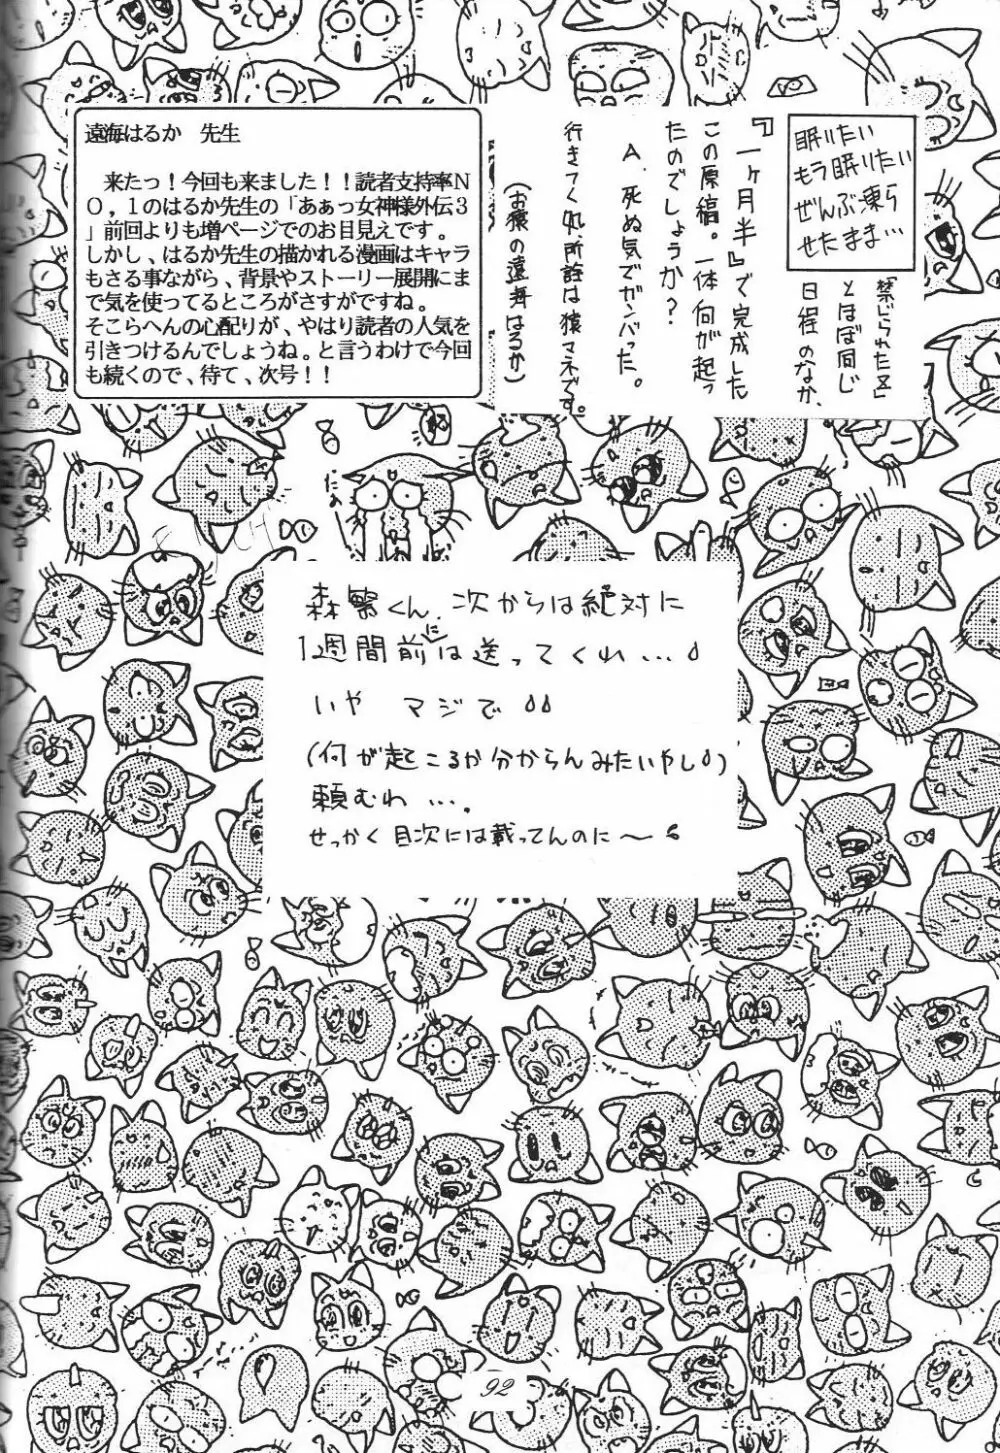 遠海はるか　先生
来たっ！今回も来ました！！読者支持率Ｎ
Ｏ，１のはるか先生の「あぁっ女神様外伝３
」前回よりも増ページでのお目見えです。
しかし、はるか先生の描かれる漫画はキャラ
もさる事ながら、背景やストーリー展開にま
で気を使ってるところがさすがですね。
そこらへんの心配りが、やはり読者の人気を
引きつけるんでしょうね。と言うわけで今回
も続くので、待て、次号！！
眠りたい
もう眠りたい
ぜんぶ凍ら
せたまま…
とほぼ同じ
日程のなか、
『一ヶ月半』で完成した
この原稿。一体何が起っ
たのでしょうか？
A. 死ぬ気でガンバった。
行きつく処、所詮は猿マネです。
(お猿の遠海はるか)
森繁くん、次からは絶対に
1週間前には送ってくれ…
いや マジで
(何が起こるか分からんみたいやし)
頼むわ…。
せっかく目次には載ってんのに〜
92